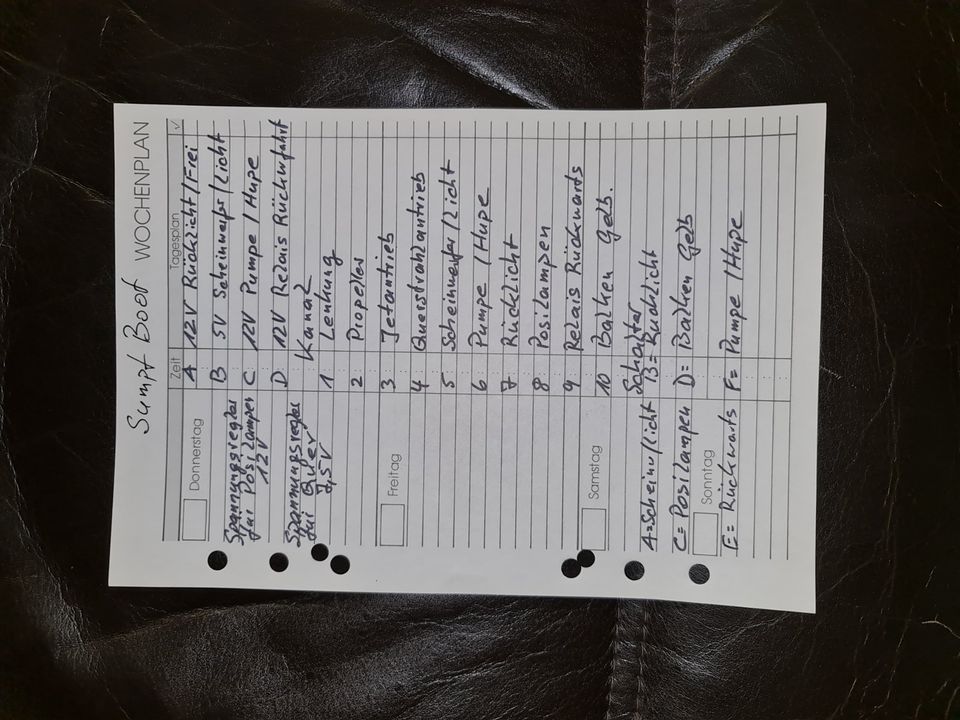 Sumpf Boot WOCHENPLAN
Zeit Tagesplan ✓
Donnerstag A 12V Rücklicht/Frei
B 5V Scheinwerfer/Licht
Spannungsregler C 12V Pumpe / Hupe
für Posilampen
12V D 12V Relais Rückwfahrt
Spannungsregler Kanal
für Quer 1 Lenkung
7,5V
2 Propeller
Freitag 3 Jetantrieb
4 Querstrahlantrieb
5 Scheinwerfer/Licht
6 Pumpe /Hupe
7 Rücklicht
8 Posilampen
9 Relais Rückwärts
Samstag 10 Balken Gelb.
Schalter
A=Scheinw/Licht B= Rücklicht
C= Posilampen D= Balken Gelb
Sonntag
E= Rückwärts F= Pumpe /Hupe